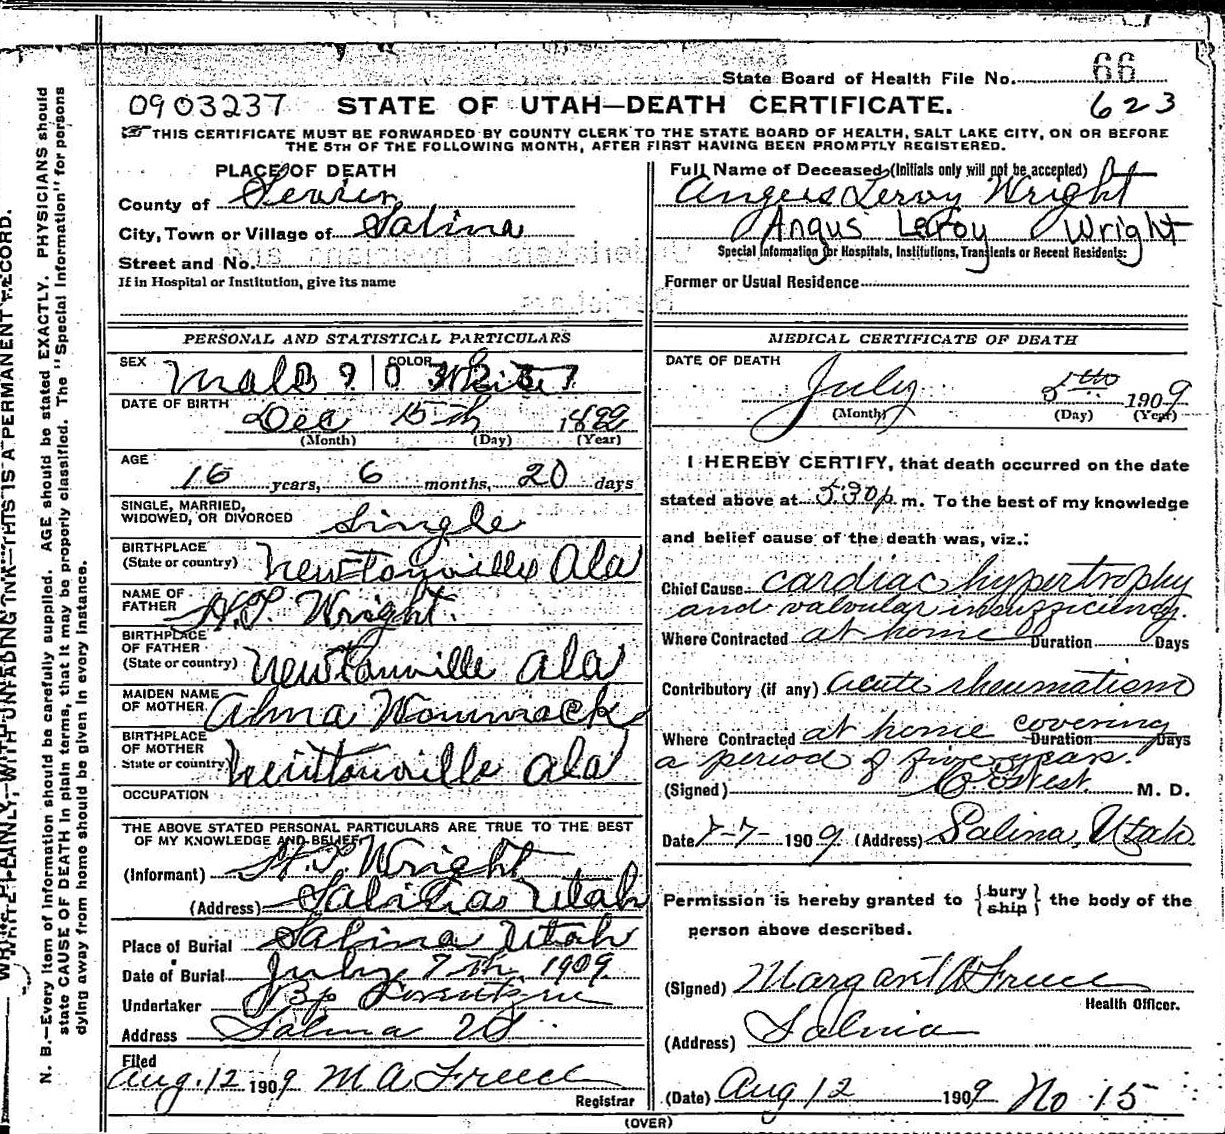 State Board of Health File No. 66
0903237 STATE OF UTAH—DEATH CERTIFICATE. 623
THIS CERTIFICATE MUST BE FORWARDED BY COUNTY CLERK TO THE STATE BOARD OF HEALTH, SALT LAKE CITY, ON OR BEFORE
THE 5TH OF THE FOLLOWING MONTH, AFTER FIRST HAVING BEEN PROMPTLY REGISTERED.
PLACE OF DEATH
County of Sevier
City, Town or Village of Salina
Street and No.
If in Hospital or Institution, give its name
Full Name of Deceased (Initials only will not be accepted)
Angus Leroy Wright
Angus Leroy Wright
Special Information for Hospitals, Institutions, Transients or Recent Residents:
Former or Usual Residence
PERSONAL AND STATISTICAL PARTICULARS
SEX Male COLOR White
DATE OF BIRTH
Dec 15th
(Month) (Day) (Year)
AGE
16 years, 6 months, 20 days
SINGLE, MARRIED,
WIDOWED, OR DIVORCED Single
BIRTHPLACE
(State or country) Newtonville Ala
NAME OF
FATHER Wright
BIRTHPLACE
OF FATHER
(State or country) Newtonville Ala
MAIDEN NAME
OF MOTHER Alma Wommack
BIRTHPLACE
OF MOTHER
State or country Newtonville Ala
OCCUPATION
THE ABOVE STATED PERSONAL PARTICULARS ARE TRUE TO THE BEST
OF MY KNOWLEDGE AND BELIEF
(Informant) Wright
(Address) Salina Utah
Place of Burial Salina Utah
Date of Burial July 7th 1909
Undertaker Bp
Address Salina Ut
Filed
Aug. 12 1909 M A Freece
Registrar
MEDICAL CERTIFICATE OF DEATH
DATE OF DEATH
July 5th 1909
(Month) (Day) (Year)
I HEREBY CERTIFY, that death occurred on the date
stated above at 5.30 p m. To the best of my knowledge
and belief cause of the death was, viz.:
Chief Cause cardiac hypertrophy
and valvular insufficiency.
Where Contracted at home Duration Days
Contributory (if any) acute rheumatism
Where Contracted at home covering Duration Days
a period of five years.
(Signed) West M. D.
Date 7-7- 1909 (Address) Salina, Utah
Permission is hereby granted to {bury ship} the body of the
person above described.
(Signed) Margaret A Freece
Health Officer.
(Address) Salina
(Date) Aug 12 1909 No 15
(OVER)
WRITE PLAINLY, WITH UNFADING INK—THIS IS A PERMANENT RECORD.
N. B.—Every item of information should be carefully supplied. AGE should be stated EXACTLY. PHYSICIANS should
state CAUSE OF DEATH in plain terms, that it may be properly classified. The "Special Information" for persons
dying away from home should be given in every instance.